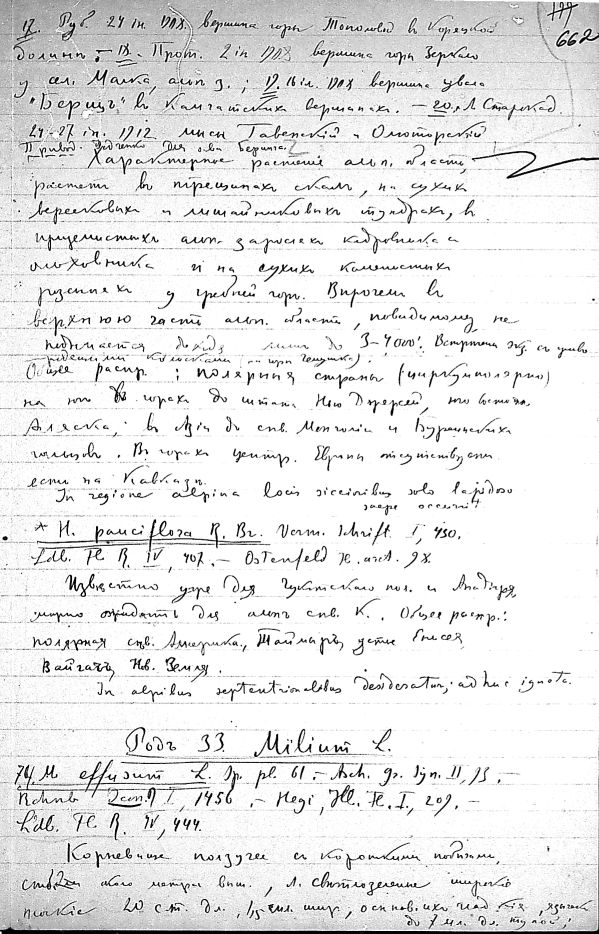 199
662
17. Руб. 24 iн. 1908 вершина горы Тополовой въ Корякской
долинѣ. – 18. Прот. 2 iн 1908 вершина горы Зеркало
у сел. Малка, альп з.; 19. 16 iл. 1908 вершина увала
"Борщъ" въ Камчатскихъ вершинахъ. – 20. Л. Старокад.
24-27 iн. 1912 мысы Говенскій и Олюторскій
Привод. для о-ва Беринга.
Характерное растенiе альп. области,
растетъ въ трещинахъ скалъ, на сухихъ
вересковыхъ и лишайниковыхъ тундрахъ, въ
альп. заросляхъ кедровника и
ольховника и на сухихъ каменистыхъ
розсыпяхъ у гребней горъ. Впрочемъ въ
верхнюю часть альп. области, повидимому не
поднимается доходя лишь до 3-4000'. Встрѣчены экз. съ
колосками (на горѣ).
Общее распр.: полярныя страны (циркумполярно)
на югъ въ горахъ до штата Нью Джерсей, юго восточн.
Аляска, въ Азiи до сѣв. Монголiи и Буреинскихъ
гольцовъ. Въ горахъ центр. Европы отсутствуетъ
есть на Кавказѣ.
In regione alpina locis siccioribus solo lapidoso
saepe occurrit
* H. pauciflora R. Br. Verm. Schrift. I, 430.
Ldb. Fl. R. IV, 407. – Ostenfeld Fl. arct. 98.
Извѣстно уже для Чукотскаго пол. и Анадыря,
можно ожидать для альпъ сѣв. К. Общее распр.:
полярная сѣв. Америка, Таймыръ, устье Енисея
Вайгачъ, Нов. Земля.
In alpibus septentrionalibus desideratur, adhuc ignota.
Родъ 33. Milium L.
M. effusum L. Sp. pl. 61. – Asch. gr. Syn. II, 93. –
Rchnb. Icon. I, 1456. – Hegi, Ill. Fl. I, 209. –
Ldb. Fl. R. IV, 444.
Корневище ползучее съ короткими побѣгами,
около метра выш., л. свѣтлозеленые широкiе
плоскiе 20 с.т. дл., 1,5 шир., основ. ихъ гладкiя, язычекъ
до 7 мл. дл. тупой;